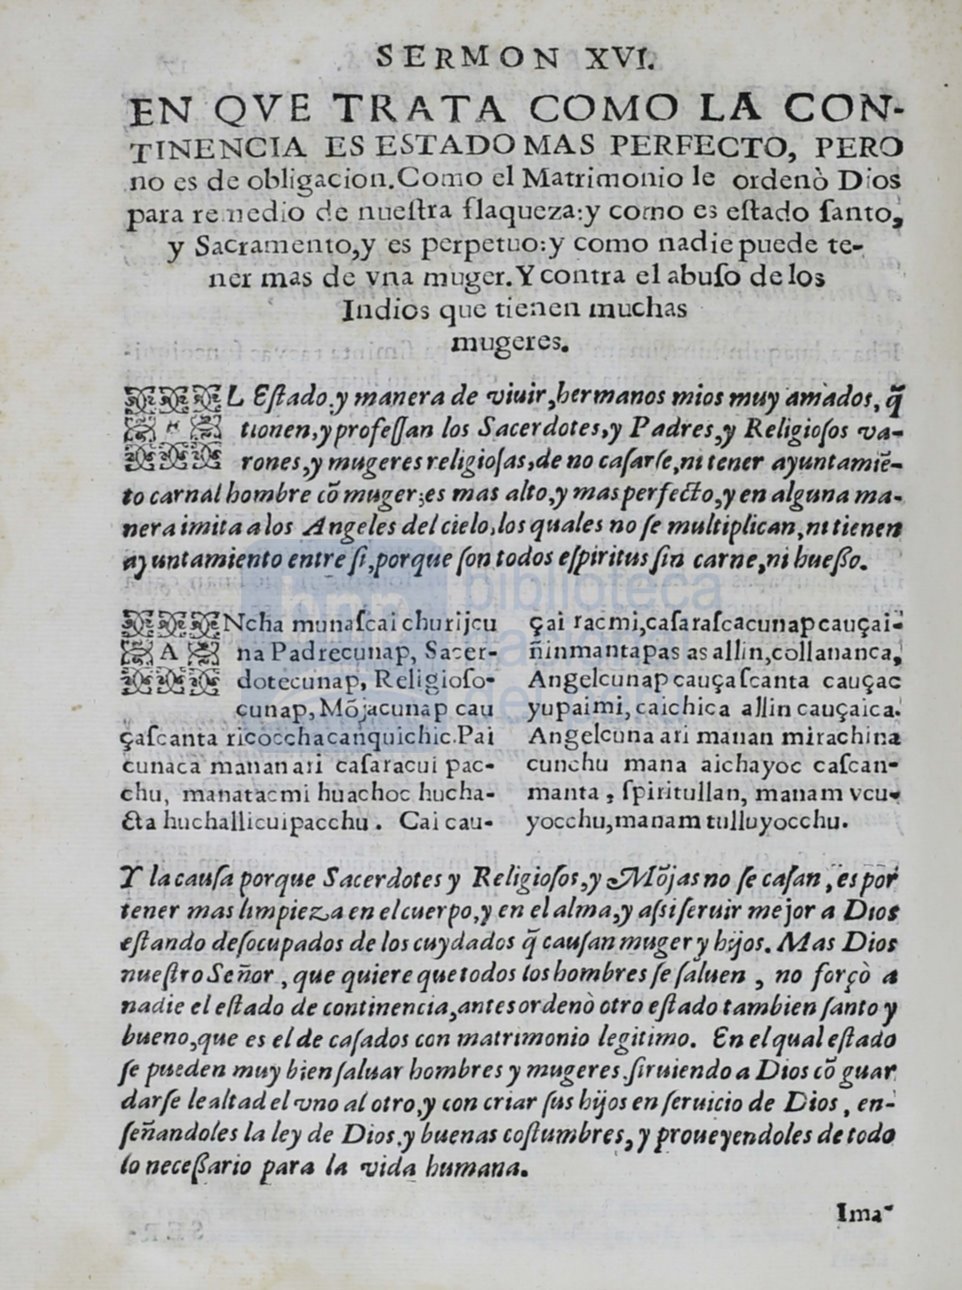 SERMON XVI.
EN QVE TRATA COMO LA CON-
TINENCIA ES ESTADO MAS PERFECTO, PERO
no es de obligacion. Como el Matrimonio le ordenò Dios
para remedio de nueſtra flaqueza: y como es eſtado ſanto,
y Sacramento, y es perpetuo: y como nadie puede te-
ner mas de vna muger. Y contra el abuſo de los
Indios que tienen muchas
mugeres.
L Eſtado, y manera de viuir, hermanos mios muy amados, q̃
tienen, y profeſſan los Sacerdotes, y Padres, y Religioſos va-
rones, y mugeres religioſas, de no caſarſe, ni tener ayuntamiẽ-
to carnal hombre cõ muger; es mas alto, y mas perfecto, y en alguna ma-
nera imita a los Angeles del cielo, los quales no ſe multiplican, ni tienen
ayuntamiento entre ſi, porque ſon todos eſpiritus ſin carne, ni hueſſo.
ANcha munaſcai churijcu
na Padrecunap, Sacer-
dotecunap, Religioſo-
cunap, Mõjacunap cau
çaſcanta ricocchacanquichic. Pai
cunaca manan ari caſaracui pac-
chu, manatacmi huachoc hucha-
cta huchallicuipacchu. Cai cau-
çai racmi, caſaraſcacunap cauçai-
ñinmantapas as allin, collananca,
Angelcunap cauçaſcanta cauçac
yupaimi, caichica allin cauçaica.
Angelcuna ari manan mirachina
cunchu mana aichayoc caſcan-
manta, ſpiritullan, manam vcu-
yocchu, manam tulluyocchu.
Y la cauſa porque Sacerdotes y Religioſos, y Mõjas no ſe caſan, es por
tener mas limpieza en el cuerpo, y en el alma, y aſsi ſeruir mejor a Dios
eſtando deſocupados de los cuydados q̃ cauſan muger y hijos. Mas Dios
nueſtro Señor, que quiere que todos los hombres ſe ſaluen, no forçò a
nadie el eſtado de continencia, antes ordenò otro eſtado tambien ſanto y
bueno, que es el de caſados con matrimonio legitimo. En el qual eſtado
ſe pueden muy bien ſaluar hombres y mugeres, ſiruiendo a Dios cõ guar
darſe lealtad el vno al otro, y con criar ſus hijos en ſeruicio de Dios, en-
ſeñandoles la ley de Dios, y buenas coſtumbres, y proueyendoles de todo
lo neceſſario para la vida humana.
Ima-
biblioteca
nacional